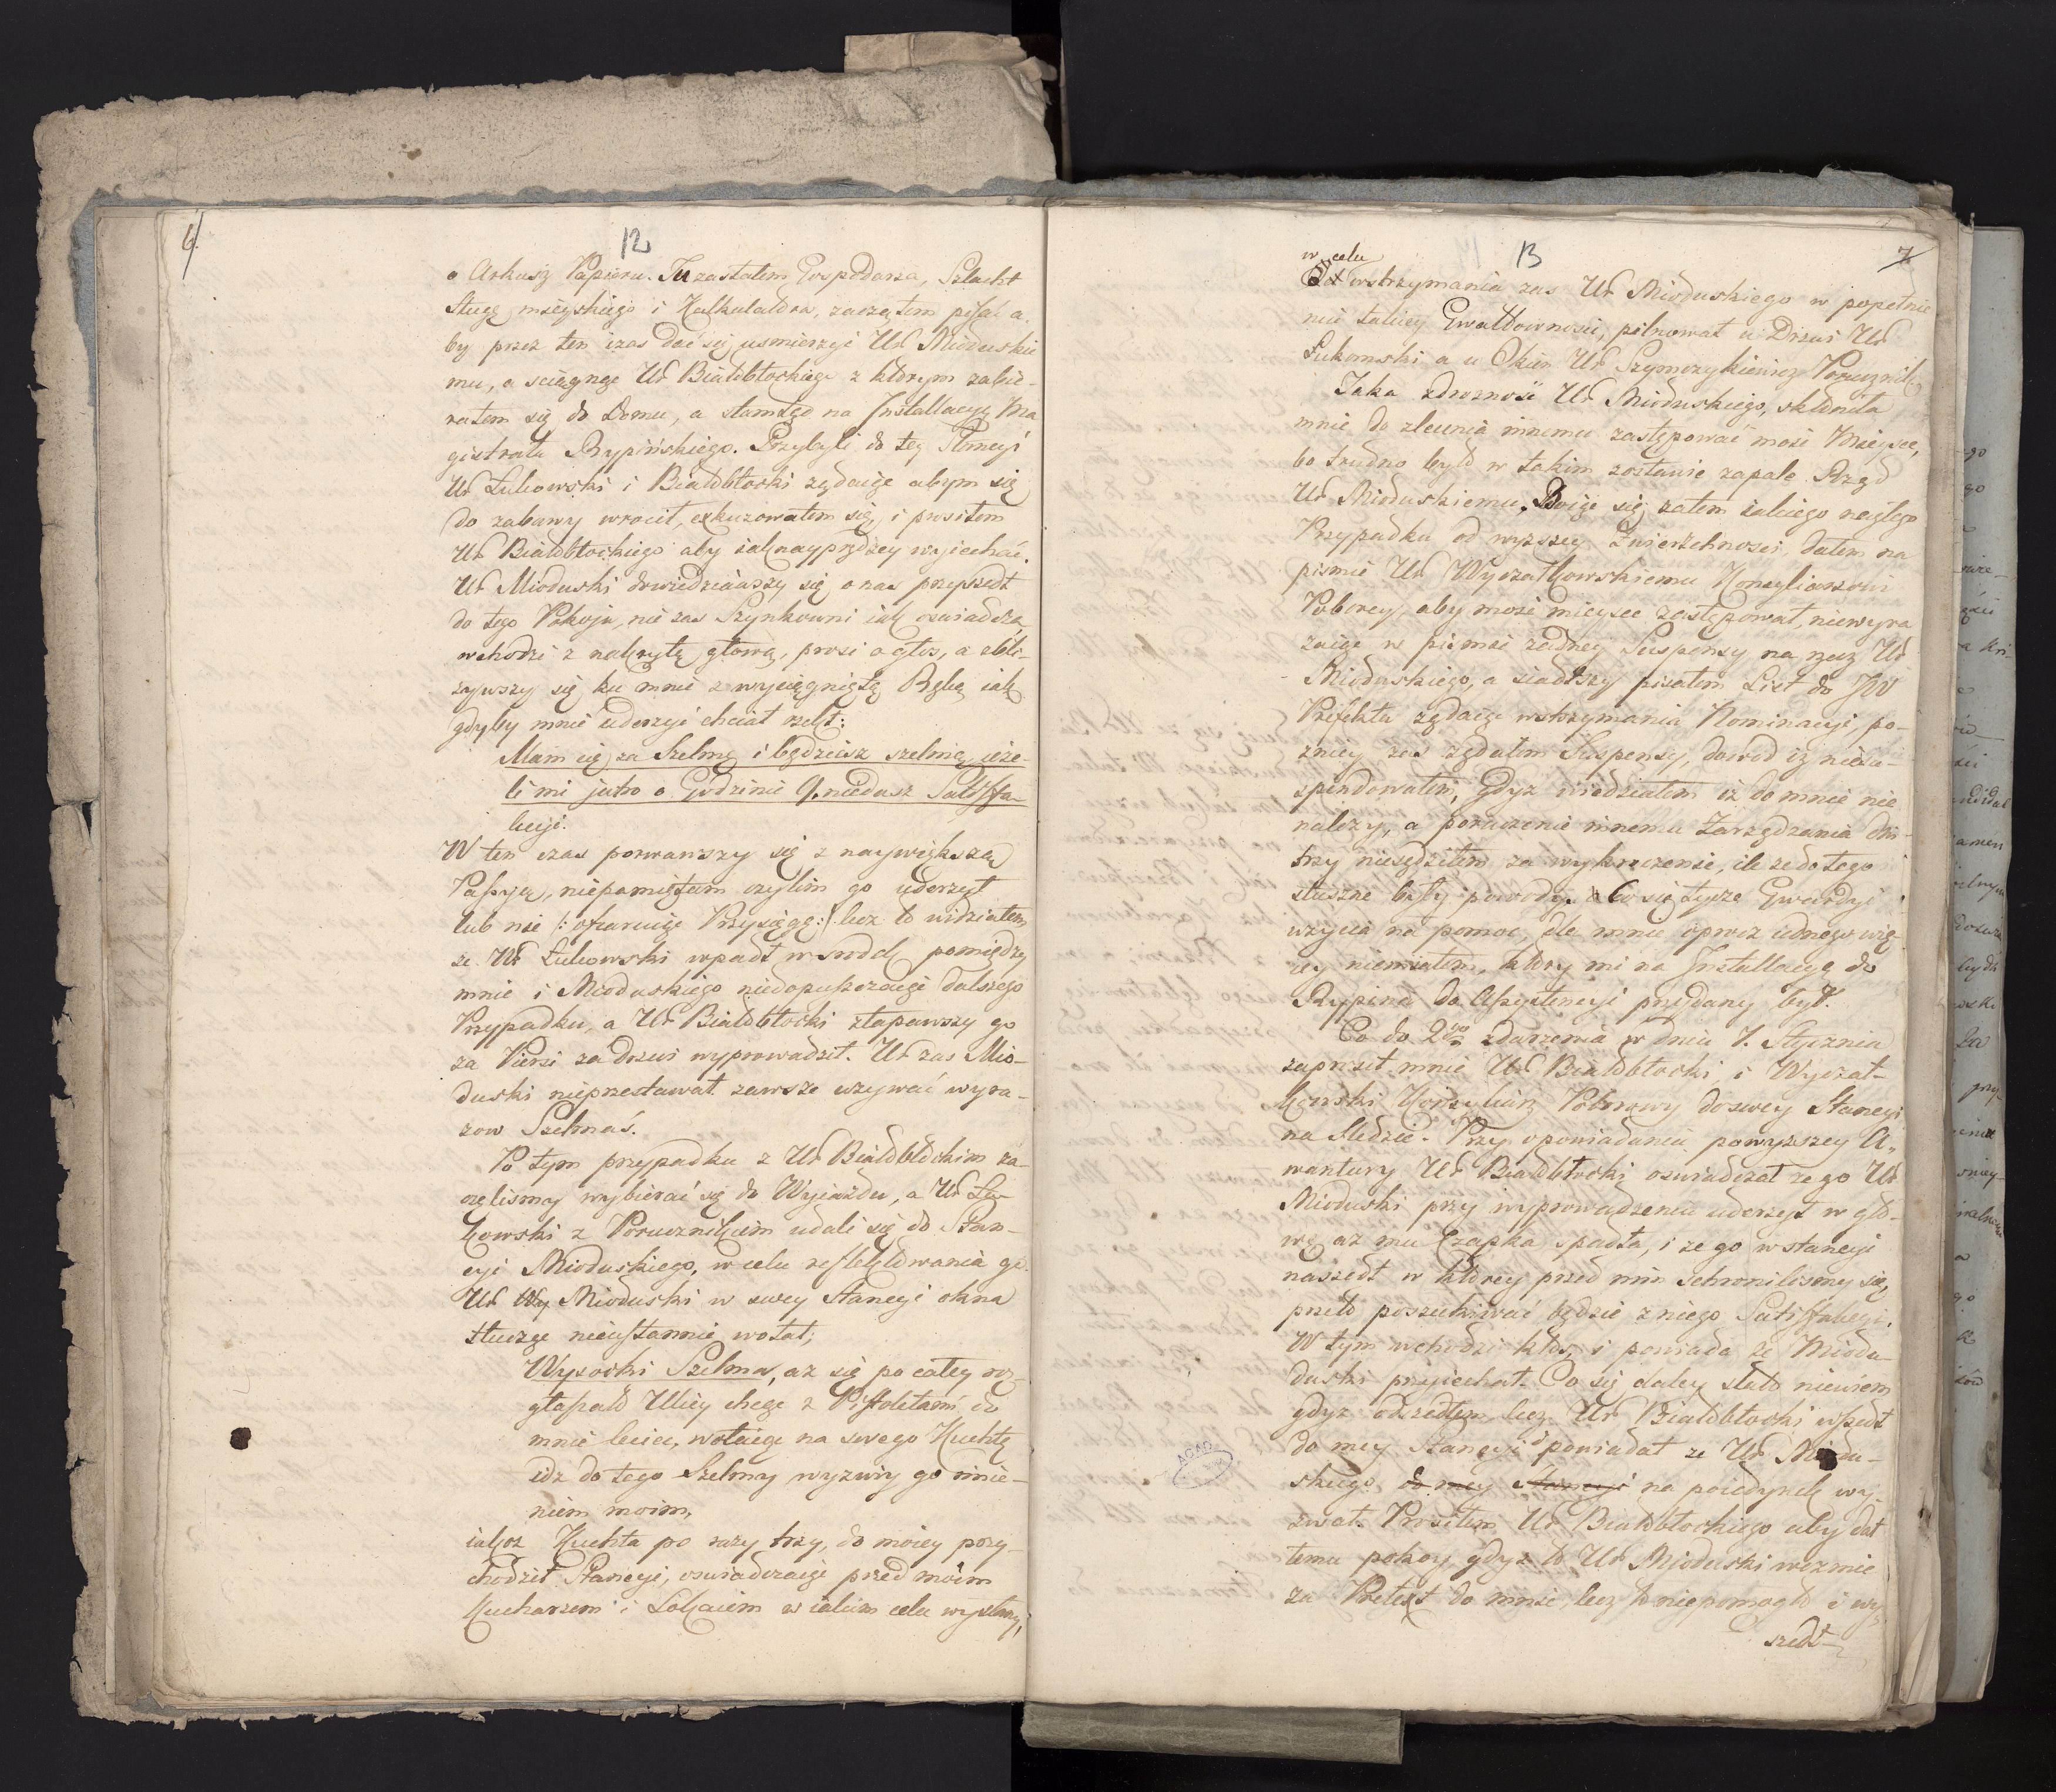 6.
12
o Arkusz Papieru. Tu zastałem Gospodarza, Szlacht
Sługę mieyskiego i Kalkulatora, zacząłem pisać a,
by przez ten czas dać się usmierzyć Ur Mioduskie
mu, a sciągnąć Ur Białobłockiego z którym zabie-
rałem się do Domu, a stamtąd na Installacyę Ma
gistratu Rypińskiego. Przybyli do tey Stancyi
Ur Łukowski i Białobłocki żądaiąc abym się
do zabawy wrocił, exkuzowałem się, i prosiłem
Ur Białobłockiego aby iak nayprędzey wyiechać.
Ur Mioduski dowiedziawszy się o nas przyszedł
do tego Pokoju, nie zas Szynkowni iak oswiadcza
wchodzi z nakrytą głową, prosi o głos, a zbli-
żywszy się ku mnie z wyciągniętą Ręką iak
gdyby mnie uderzyć chciał rzekł:
Mam cię za Szelmę i będziesz szelmą ieże-
li mi jutro o Godzinie 9. niedasz Satisffa-
kcyi.
W ten czas porwawszy się z naywiększą
Passyą, niepamiętam czylim go uderzył
lub nie /: ofiaruiąc Przysięgę :/ lecz to widziałem
ze Ur Łukowski wpadł w srodek pomiędzy
mnie i Mioduskiego niedopuszczaiąc dalszego
Przypadku, a Ur Białobłocki złapawszy go
za Piersi za drzwi wyprowadził. Ur zas Mio-
duski nieprzestawał zawsze uzywać wyra-
zow Szelmaś.
Po tym przypadku z Ur Białobłockim za-
częlismy wybierać się do Wyiazdu, a Ur Łu-
kowski z Porucznikiem udali się do Stan-
cyi Mioduskiego, w celu reflektowania go.
Ur Mioduski w swey Stancyi okna
tłucząc nieustannie wołał;
Wysocki Szelma, az się po całey roz-
głaszało Ulicy chcąc z Pistoletami do
mnie lecieć, wołaiąc na swego Kuchtę
idz do tego Szelmy wyzwiy go imie-
niem moim,
iakoz Kuchta po razy trzy, do moiey przy-
chodził Stancyi, oswiadczaiąc przed moim
Kucharzem i Lokaiem w iakim celu wysłany,
13
7
w celu
wstrzymania zas Ur Mioduskiego w popełnie
niu takiey Gwałtownosci, pilnował u Drzwi Ur
Łukowski a u Okien Ur Szymczykiewicz Porucznik.
Taka zdrozność Ur Mioduskiego, skłoniła
mnie do zlecenia innemu zastępować moie Mieysce,
bo trudno było w takim zostawić zapale Rząd
Ur Mioduskiemu. Boiąc się zatem iakiego nagłego
Przypadku od wyzszey Zwierzchnosci, dałem na
pismie Ur Wyczałkowskiemu Konsyliarzowi
Poborcy, aby moie mieysce zastępował, niewyra
zaiąc w pismie zadney Suspensy na rzecz Ur
Mioduskiego, a siadłszy pisałem List do JW
Prefekta żądaiąc wstrzymania Nominacyi, po-
zniey zas żądałem Suspensy, dowod iz niesu-
spendowałem, Gdyz wiedziałem iz do mnie nie
należy, a poruczenie innemu Zarządzania dni
trzy niesądziłem za wykroczenie, ile ze do tego
słuszne były powody. Co się tycze Gwardyi
wzięcia na pomoc, dla mnie oprocz iednego wię-
cey niemiałem, który mi na Installacyą do
Rypina do Assystencyi przydany był.
Co do 2go zdarzenia w dniu 7. Stycznia
zaprosił mnie Ur Białobłocki i Wyczał-
kowski Konsyliarz Poborowy do swey Stancyi
na Sledzie. Przy opowiadaniu powyzszey A,
wantury Ur Białobłocki oswiadczał ze go Ur
Mioduski przy wyprowadzeniu uderzył w gło-
wę az mu Czapka spadła, i ze go w stancyi
naszedł w ktorey przed nim schronilismy się,
przeto poszukiwać będzie z niego Satisffakcyi.
W tym wchodzi ktoś, i powiada ze Miodu-
duski przyiechał. Co się daley stało niewiem
gdyz odszedłem, lecz Ur Białobłocki wszedł
do mey Stancyi i powiadał ze Ur Miodu-
skiego do mey Stancyi na poiedynek wy-
zwał. Prosiłem Ur Białobłockiego aby dał
temu pokoy, gdyz to Ur Mioduski wezmie
za Pretext do mnie, lecz to niepomogło i wy-
szedł
AGAD